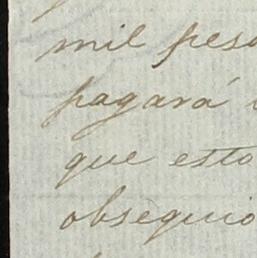 mil peso
pagará
que esto
obsequio